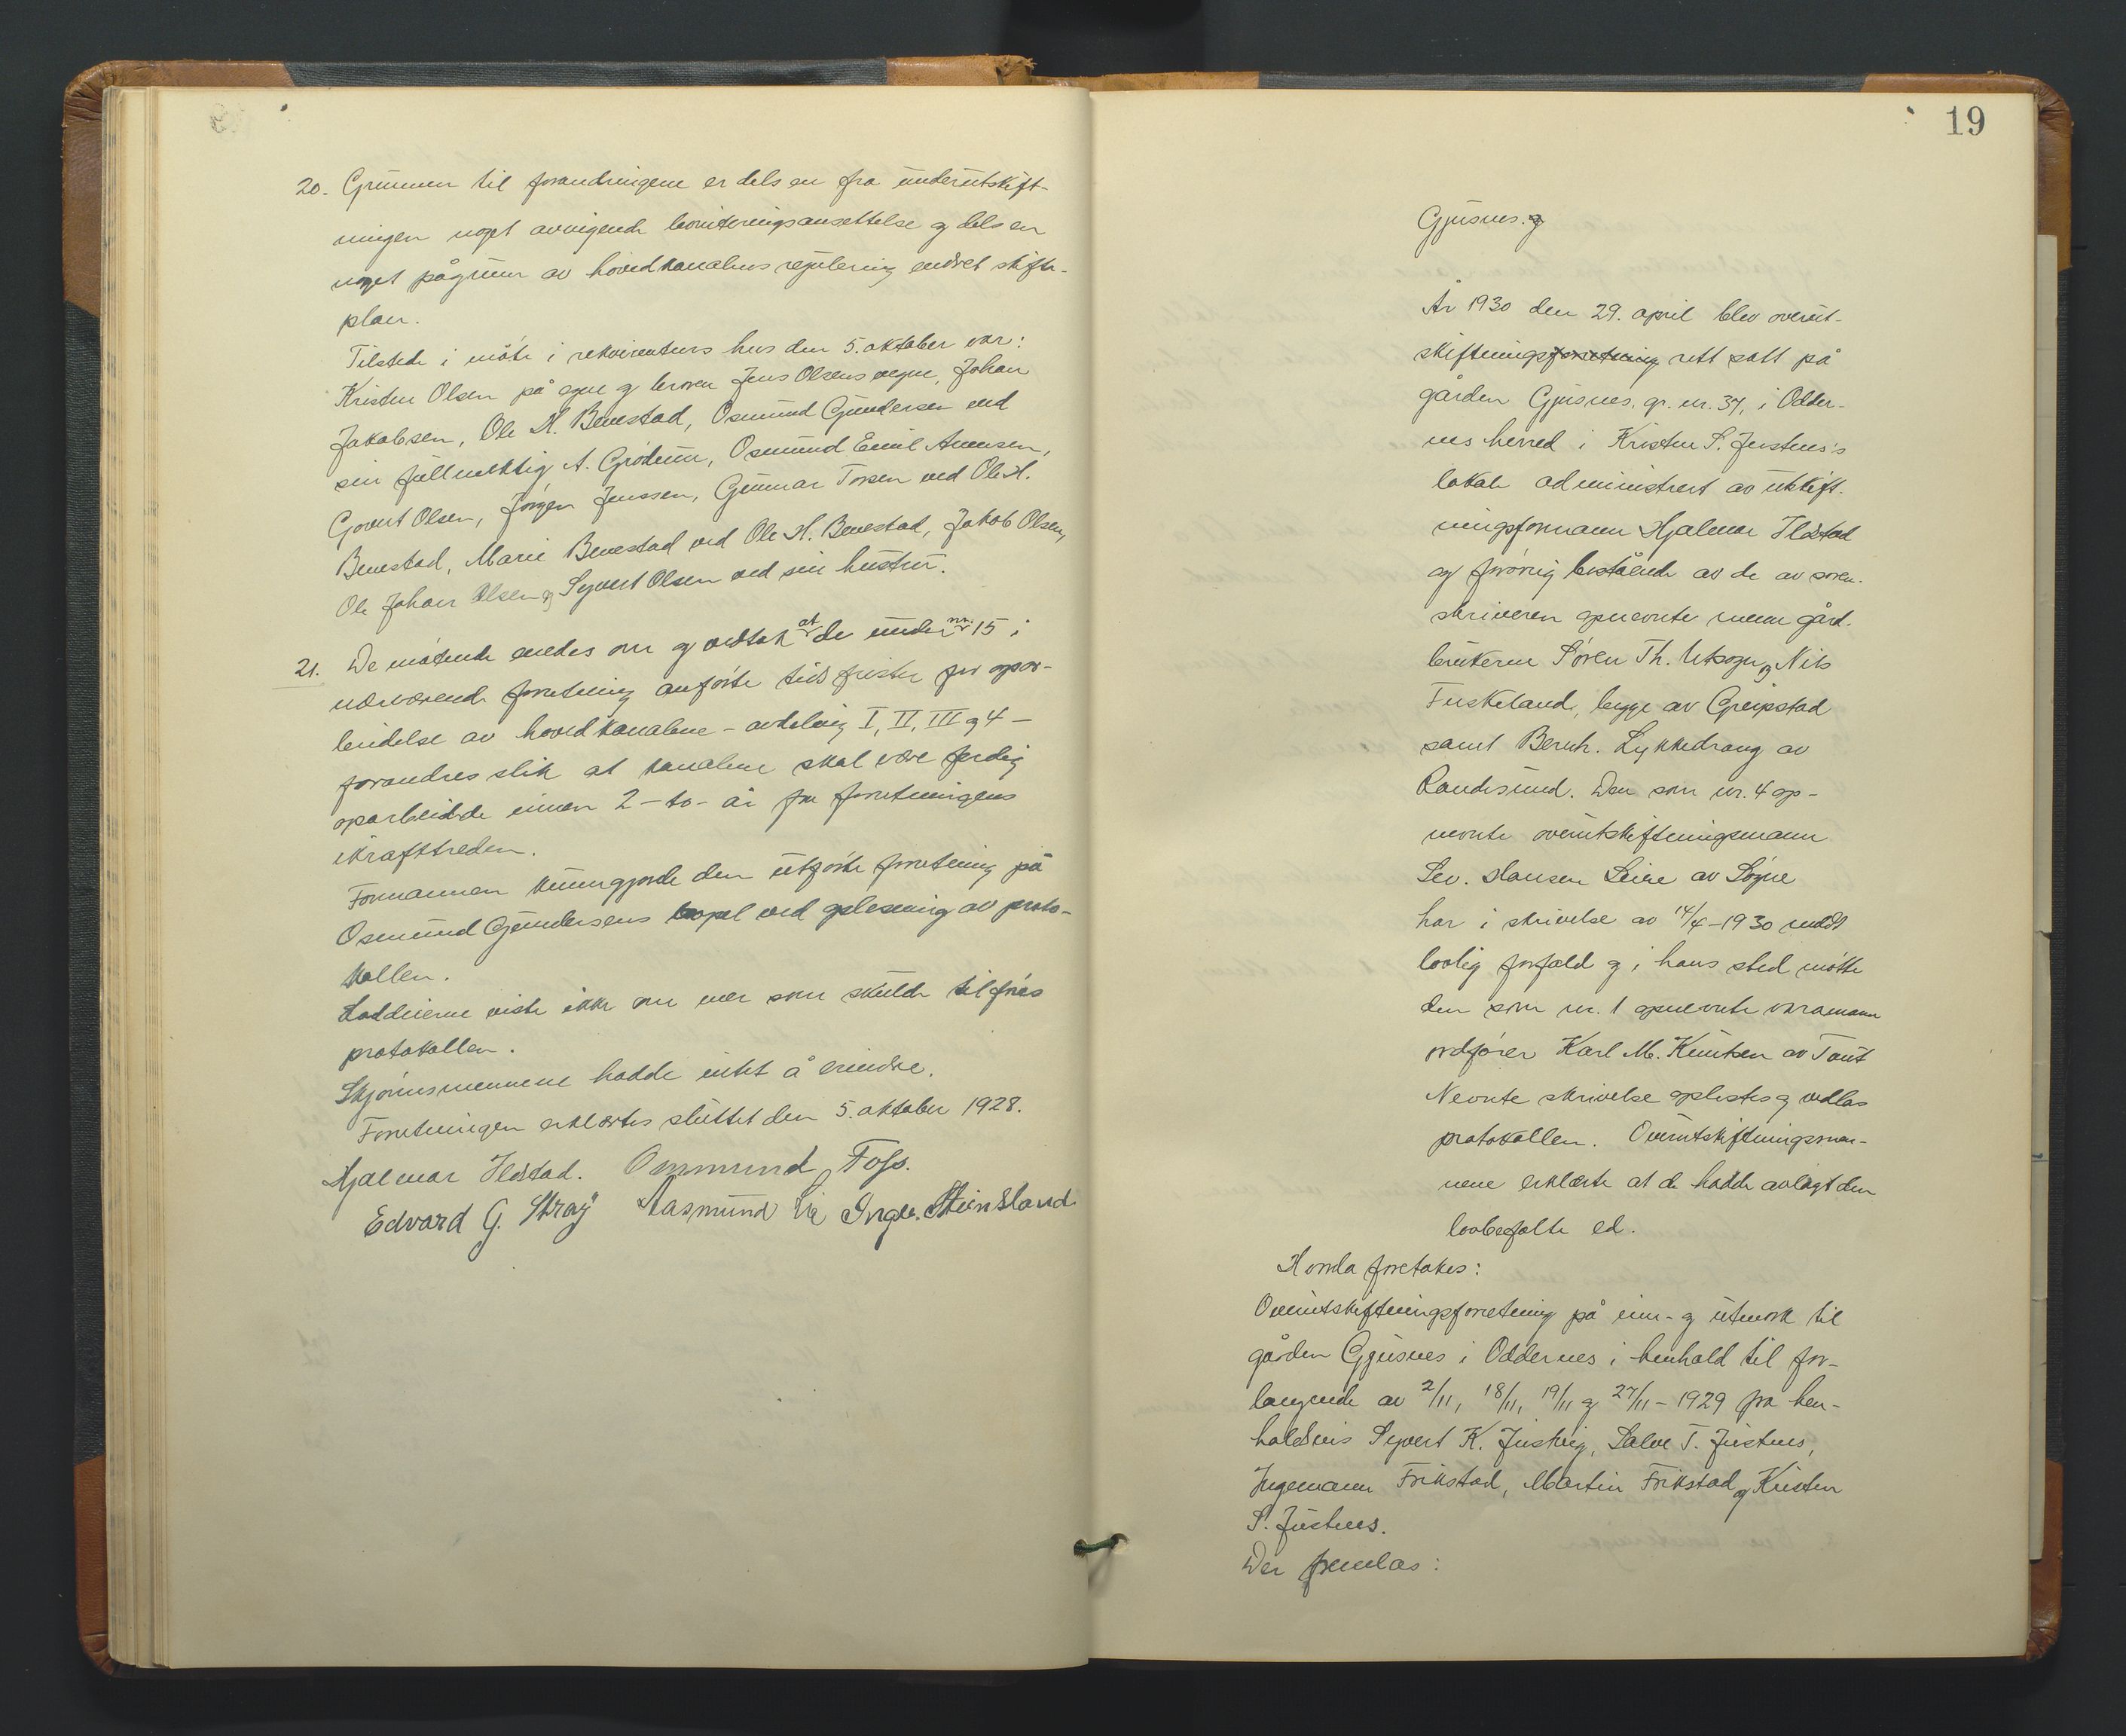 20. Grunnen til forandringene er dels en fra underutskift-
ningen noget avvigende boniteringsansettelse og dels en
noget pågrunn av hovedkanalens regulering endret skifte-
plan.
Tilstede i møte i rekvirentens hus den 5. oktober var:
Kristen Olsen på egne og broren Jens Olsens vegne, Johan
Jakobsen, Ole H. Benestad, Osmund Gundersen ved
sin fullmektig A. Grødum, Osmund Emil Aanensen,
Govert Olsen, Jørgen Jenssen, Gunnar Torsen ved Ole H.
Benestad, Marie Benestad ved Ole H. Benestad, Jakob Olsen,
Ole Johan Olsen og Syvert Olsen ved sin hustru.
21. De møtende enedes om og vedtok at de under nr. 15 i
nærværende forretning anførte tidsfrister for opar-
beidelse av hovedkanalene - avdeling I, II, III og 4 -
forandres slik at kanalene skal være ferdig
oparbeidede innen 2 - to - år fra forretningens
ikrafttreden.
Formannen kunngjorde den utførte forretning på
Osmund Gundersens bopel ved oplesning av proto-
kollen.
Loddeierne viste ikke om mer som skulde tilføres
protokollen.
Skjønnsmennene hadde intet å erindre.
Forretningen erklærtes sluttet den 5. oktober 1928.
Hjalmar Ildstad. Ommund Foss.
Edvard G. Stray Aasmund Lie Ingv. Steinsland.
19
Gjusnes. og
År 1930 den 29. april blev overut-
skiftningsforretning rett satt på
gården Gjusnes. gr. nr. 37, i Odder-
nes herred i Kristen S. Justnes's
lokale administrert av utskift-
ningsformann Hjalmar Ildstad
og forøvrig bestående av de av soren-
skriveren opnevnte menn gård-
brukerne Søren Th. Utsogn og Nils
Fuskeland, begge av Greipstad
samt Bernh. Lykkedrang av
Randesund. Den som nr. 4 op-
nevnte overutskiftningsmann
Sev. Hansen Leire av Søgne
har i skrivelse av 14/4-1930 meldt
lovlig forfald og i hans sted møtte
den som nr. 1 opnevnte varamann
ordfører Karl M. Knutsen av Tveit
Nevnte skrivelse oplestes og vedlas
protokollen. Overutskiftningsmen-
nene erklærte at de hadde avlagt den
lovbefalte ed.
Hvorda foretokes:
Overutskiftningsforretning på inn- og utmark til
gården Gjusnes i Oddernes i henhold til for-
langende av 2/11, 18/11, 19/11 og 27/11 - 1929 fra hen-
holdsvis Syvert K. Justvig, Salve T. Justnes,
Ingemann Frikstad, Martin Frikstad og Kristen
S. Justnes.
Der fremlas: